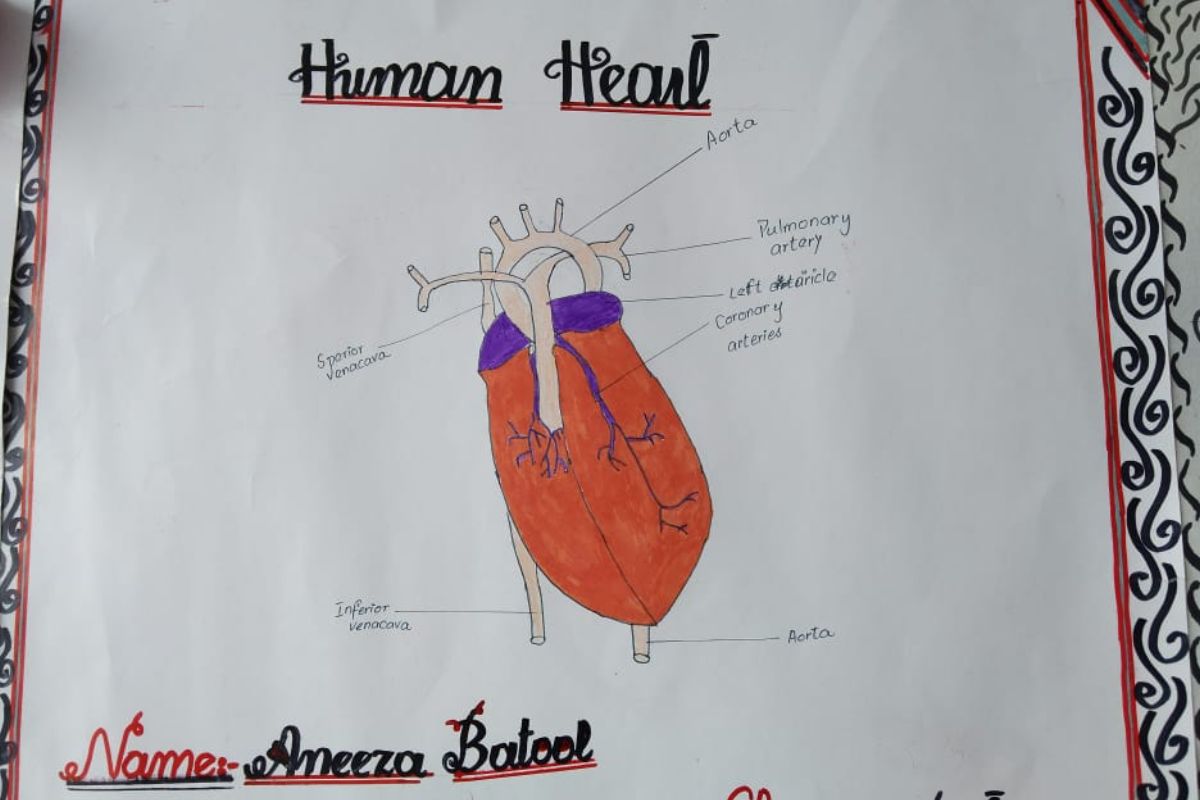 Human Heart
Aorta
Pulmonary
artery
Left
Coronary
arteries
Sperior
venacava
Inferior
venacava
Aorta
Name:- Aneeza Batool